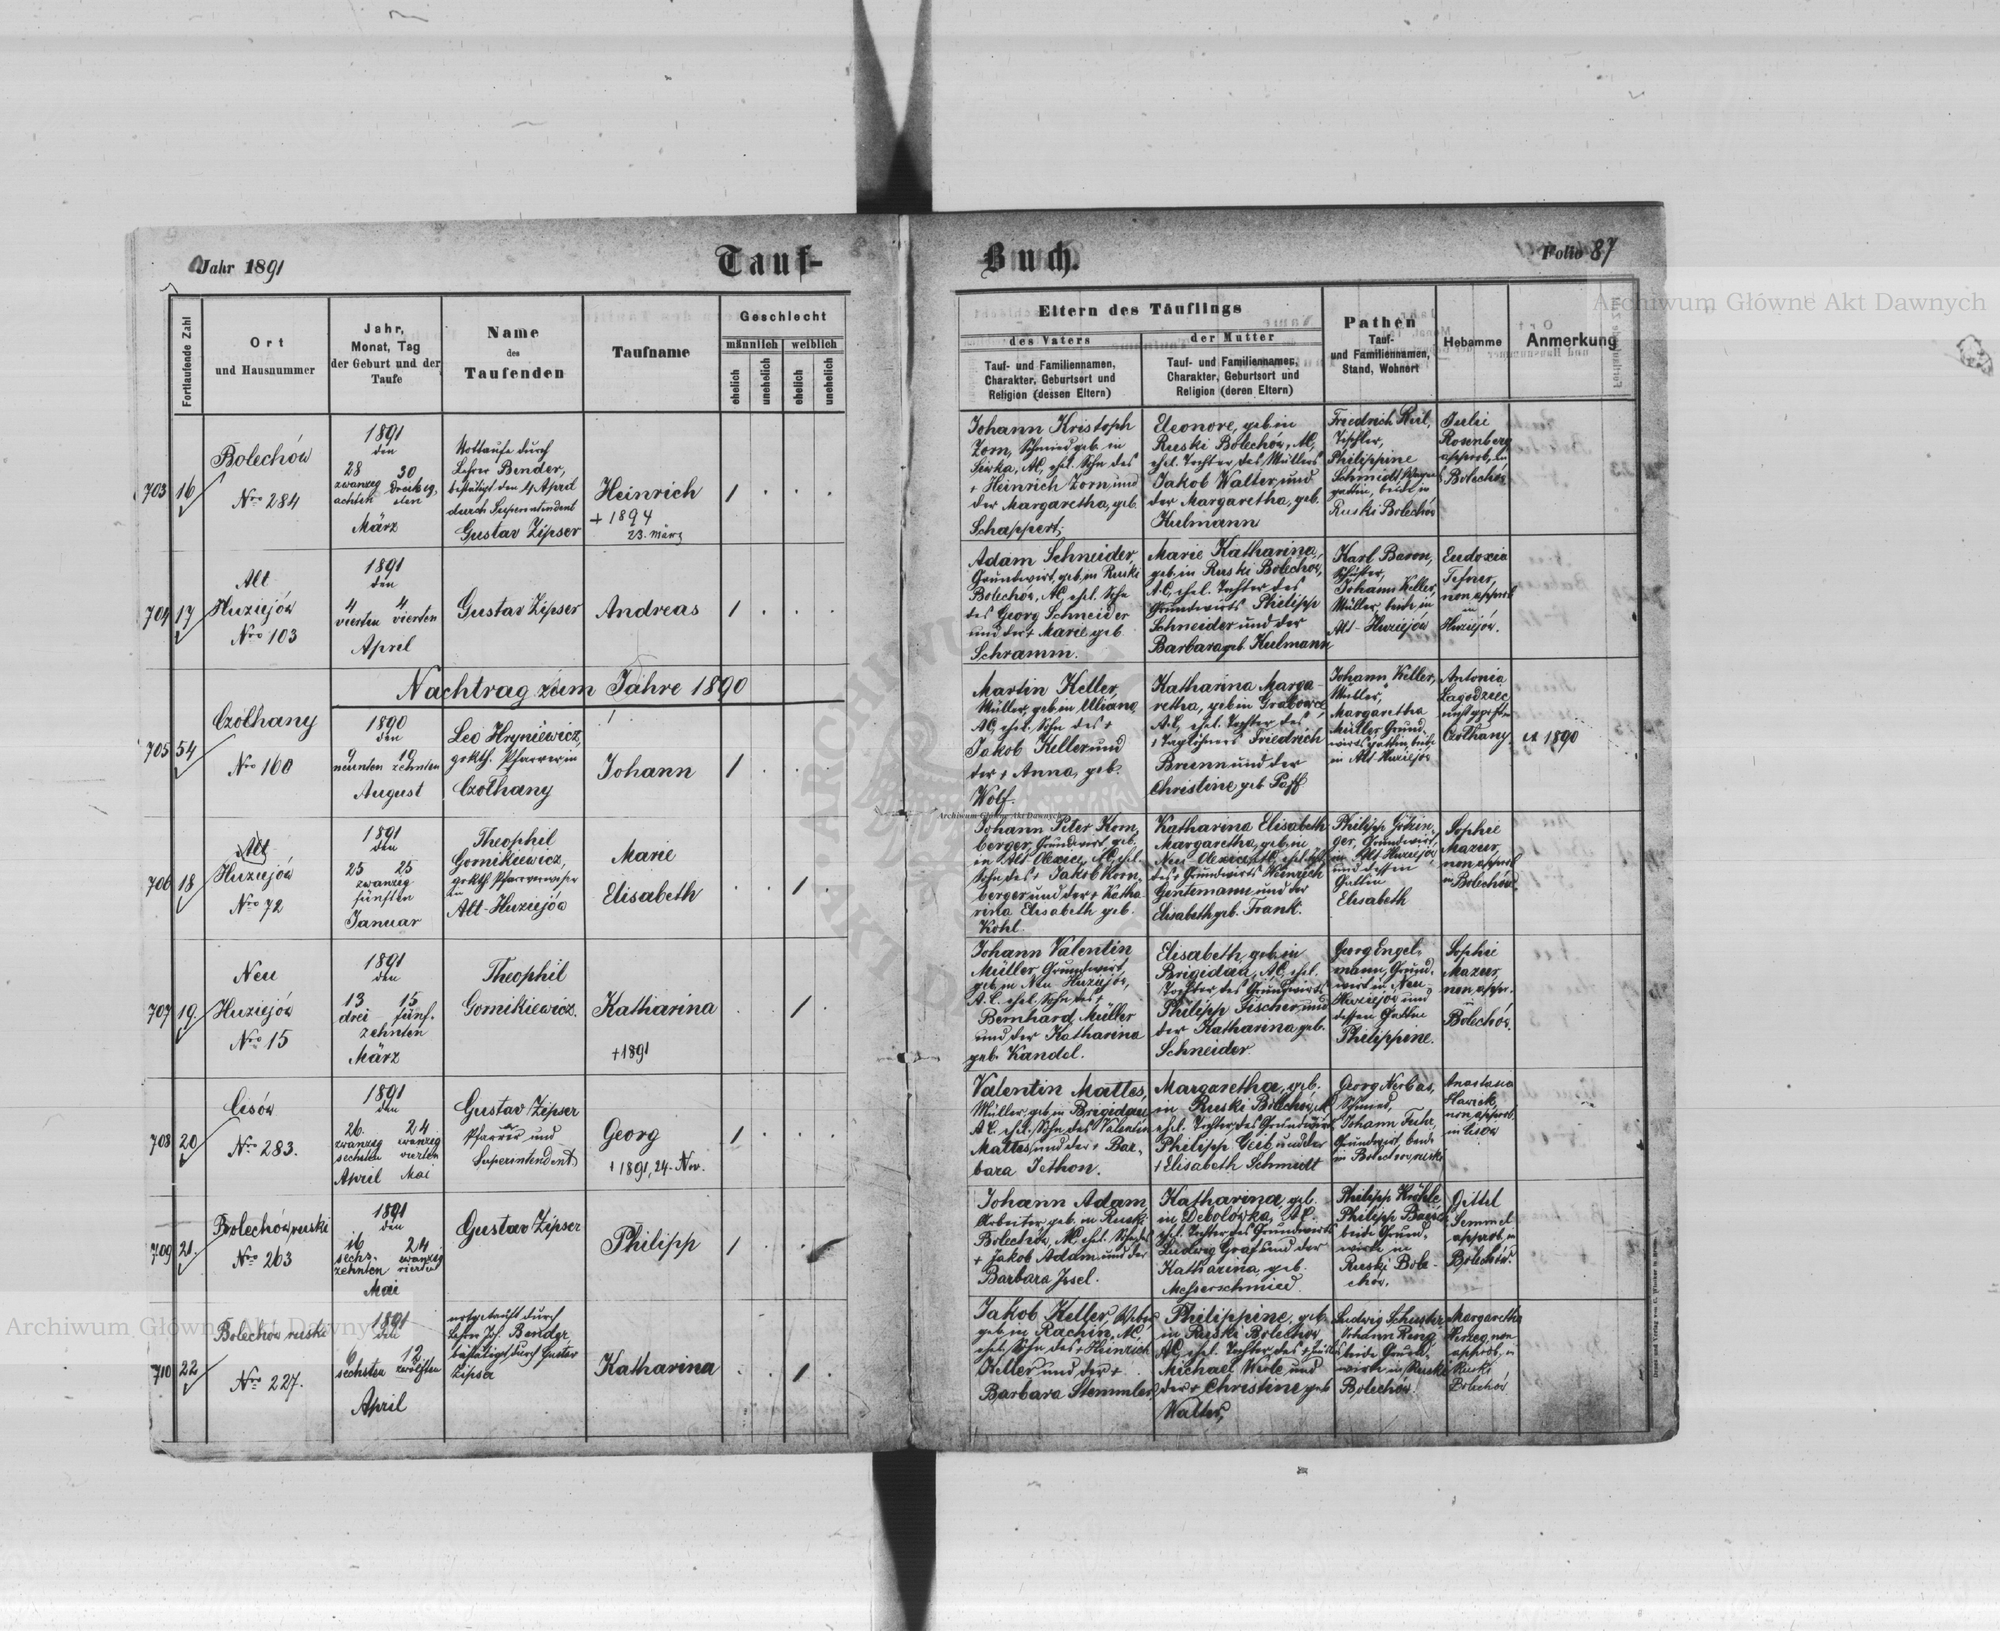 Jahr 1891
Tauf-
Buch.
Folio 87
Archiwum Główne Akt Dawnych
Fortlaufende Zahl
Ort
und Hausnummer
Jahr,
Monat, Tag
der Geburt und der
Taufe
Name
des
Taufenden
Taufname
Geschlecht
männlich
weiblich
ehelich
unehelich
ehelich
unehelich
Eltern des Täuflings
des Vaters
der Mutter
Tauf- und Familiennamen,
Charakter, Geburtsort und
Religion (dessen Eltern)
Tauf- und Familiennamen,
Charakter, Geburtsort und
Religion (deren Eltern)
Pathen
Tauf-
und Familiennamen,
Stand, Wohnort
Hebamme
Anmerkung
703
16
Bolechów
Nro 284
1891
den
28 30
zwanzig dreißig,
achten sten
März
Nottaufe durch
Lehrer Bender,
bestätigt den 4 April
durch Superintendent
Gustav Zipser
Heinrich
+ 1894
23. März
1
Johann Kristoph
Zorn, Schmied geb. in
Siwka, AC, ehel. Sohn des
+ Heinrich Zorn und
der Margaretha, geb.
Schappert;
Eleonore, geb in
Ruski Bolechów, AC,
ehel. Tochter des Müllers
Jakob Walter und
der Margaretha, geb.
Kulmann
Friedrich
Tischler,
Philippine
Schmidt
gattin, beide in
Ruski Bolechów
Julie
Rosenberg
approb. in
Bolechów
704
17
Alt
Huziejów
Nro 103
1891
den
4 4
vierten vierten
April
Gustav Zipser
Andreas
1
Adam Schneider,
Grundwirt, geb. in Ruski
Bolechów, AC, ehel. Sohn
des Georg Schneider
und der + Marie geb.
Schramm.
Marie Katharina,
geb. in Ruski Bolechów,
A.C., ehel. Tochter des
Grundwirts Philipp
Schneider und der
Barbara geb. Kulmann
Karl Baron,
Schuster,
Johann Keller,
Müller, beide in
Alt-Huziejów
Eudoxia
Tefner,
non approb
in
Huziejów.
Nachtrag zum Jahre 1890
705
54
Czołhany
Nro 100
1890
den
9 10
neunten zehnten
August
Leo Hryniewicz,
grkth. Pfarrer in
Czołhany
Johann
1
Martin Keller,
Müller, geb. in Uliano,
AC, ehel. Sohn des +
Jakob Keller und
der + Anna, geb.
Wolf.
Katharina Marga-
retha, geb in Grabowce,
A.C., ehel. Tochter des
+ Taglöhners Friedrich
Brunn und der
Christine geb. Paff
Johann Keller,
Müller,
Margaretha
Müller, Grund-
wirts gattin, beide
in Alt-Huziejów
Antonia
Lagodziec
nicht geprüft
Czołhany
1890
706
18
Alt
Huziejów
Nro 72
1891
den
25 25
zwanzig
fünften
Januar
Theophil
Gornikiewicz,
grkth. Pfarrverweser
in
Alt-Huziejów
Marie
Elisabeth
1
Archiwum Główne Akt Dawnych
Johann Peter Korn-
berger, Grundwirt, geb.
in Alt Olexice, AC, ehel.
Sohn des + Jakob Korn,
berger und der + Katha
rina Elisabeth geb.
Kohl.
Katharina Elisabeth
Margaretha, geb. in
Neu Olexice, AC, ehel. Tocht.
des + Grundwirts Heinrich
Gentemann und der
Elisabeth geb. Frank.
Philipp
ger, Grundwirt,
in Alt Huziejów
und dessen
Gattin
Elisabeth
Sophie
Mazur,
non approb
in Bolechów
707
19
Neu
Huziejów
Nro 15
1891
den
13 15
drei fünf-
zehnten
März
Theophil
Gornikiewicz.
Katharina
+1891
1
Johann Valentin
Müller, Grundwirt,
geb. in Neu Huziejów,
A.C. ehel. Sohn des +
Bernhard Müller
und der Katharina
geb. Kandel.
Elisabeth, geb. in
Brigidau, AC, ehel.
Tochter des Grundwirts
Philipp Fischer, und
der Katharina geb.
Schneider.
Georg Engel-
mann, Grund-
wirt in Neu-
Huziejów und
dessen Gattin
Philippine.
Sophie
Mazur,
non appr.
in
Bolechów
708
20
Cisów
Nro 283.
1891
den
26. 24
zwanzig zwanzig
sechsten vierten
April Mai
Gustav Zipser
Pfarrer und
Superintendent
Georg
+ 1891, 24. Nov.
1
Valentin Mattes,
Müller, geb. in Brigidau
A.C. ehel. Sohn des Valentin
Mattes und der + Bar-
bara Jethon.
Margaretha, geb.
in Ruski Bolechów, AC
ehel. Tochter des Grundwirts
Philipp Geib und der
+ Elisabeth Schmidt
Georg Nerbas,
Schmied,
Johann Fuhr,
Grundwirt, beide
in Bolechów ruski
Anastasia
Hawrick,
non approb.
in Cisów
709
21.
Bolechów ruski
Nro 263
1891
den
16 24
sech- zwanzig
zehnten vierten
Mai
Gustav Zipser
Philipp
1
Johann Adam
Arbeiter, geb. in Ruski
Bolechów, AC, ehel. Sohn des
+ Jakob Adam und der
Barbara Issel.
Katharina, geb.
in Debolówka, AC.
ehel. Tochter des Grundwirts
Ludwig Graf und der
Katharina, geb.
Messerschmied
Philipp
Philipp
beide Grund-
wirte in
Ruski Bole-
chów.
Gittel
Semmel
approb. in
Bolechów.
Archiwum Główne Akt Dawnych
710
22
Bolechów ruski
Nro 227.
1891
den
6 12
sechsten zwölften
April
notgetauft durch
Lehrer Joh. Bendgr,
bestätigt durch Gustav
Zipser
Katharina
1
Jakob Keller,
geb. in Rachin, AC,
ehel. Sohn des + Heinrich
Keller und der +
Barbara Stemmler,
Philippine, geb.
in Ruski Bolechów
AC, ehel. Tochter des +
Michael und
der + Christine geb
Walter,
Ludwig Schuster
Johann
beide Grund-
wirte in Ruski
Bolechów.
Margaretha
Herzog, non
approb. in
Ruski
Bolechów